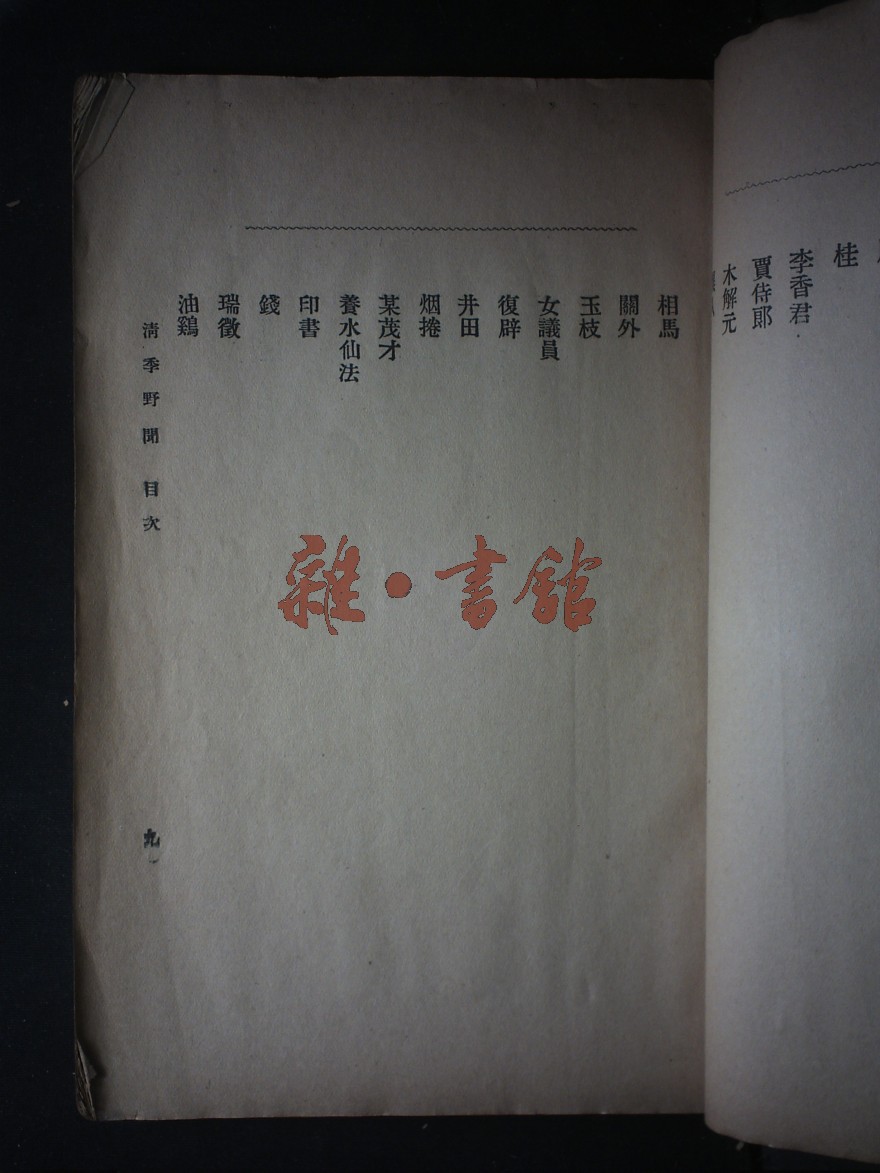 桂
李香君
賈侍郎
木解元
相馬
關外
玉枝
女議員
復辟
井田
烟捲
某茂才
養水仙法
印書
錢
瑞徵
油鷄
清季野聞 目次
九
雜·書館